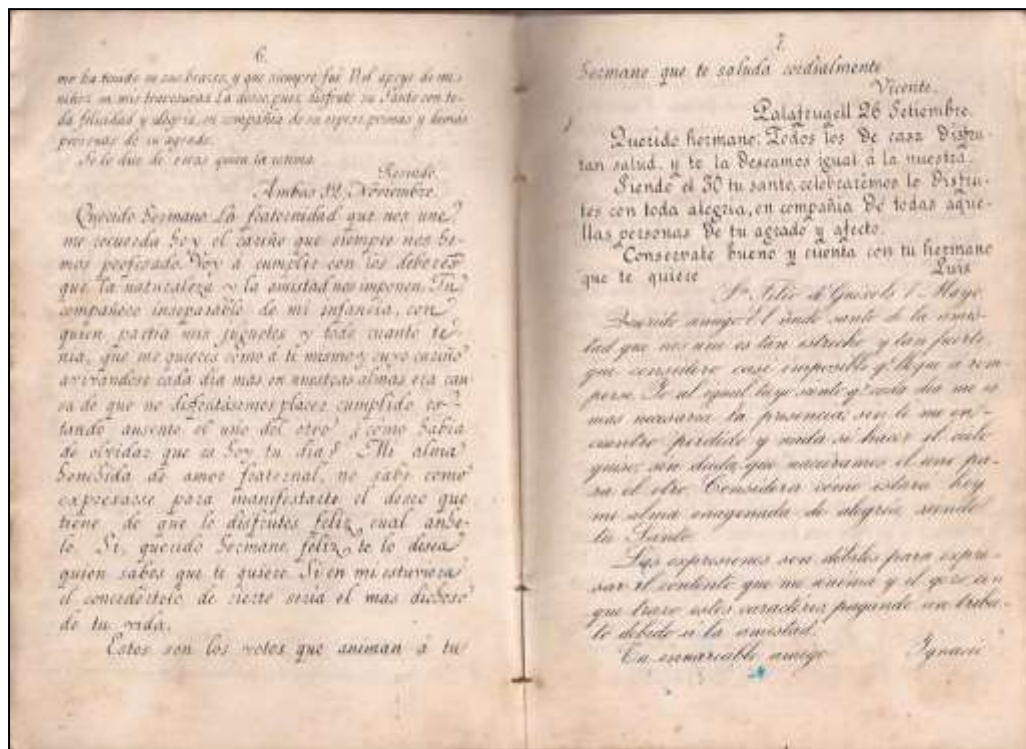 6.
me ha tenido en sus brazos, y que siempre fué Vd. apoyo de mi
niñez en mis travesuras. La deseo, pues, disfrute su Santo con to-
da felicidad y alegria, en compañia de su esposo, primas y demás
personas de su agrado.
Se lo dice de veras quien la estima
Rosendo.
Ambas 12 Noviembre.
Querido hermano: La fraternidad que nos une
me recuerda hoy el cariño que siempre nos he-
mos profesado. Voy á cumplir con los deberes
que la naturaleza y la amistad nos imponen. Tu
compañero inseparable de mi infancia, con
quien partia mis juguetes y todo cuanto te-
nia, que me quieres como á ti mismo y cuyo cariño
avivandose cada dia mas en nuestras almas era cau
sa de que no disfrutásemos placer cumplido es-
tando ausente el uno del otro ¿como habia
de olvidar que es hoy tu dia? Mi alma
henchida de amor fraternal, no sabe como
expresarse para manifestarte el deseo que
tiene, de que lo disfrutes feliz cual anhe-
lo. Si, querido hermano, feliz te lo desea
quien sabes que te quiere. Si en mi estuviera
el concedértelo de cierto seria el mas dichoso
de tu vida.
Estos son los votos que animan á tu
7.
hermano que te saluda cordialmente
Vicente.
Palafrugell 26 Setiembre.
Querido hermano: Todos los de casa disfru-
tan salud, y te la deseamos igual á la nuestra.
Siendo el 30 tu santo, celebrarémos lo disfru-
tes con toda alegria, en compañia de todas aque-
llas personas de tu agrado y afecto.
Conservate bueno y cuenta con tu hermano
que te quiere
Luis
Sn. Feliu de Guixols 1 Mayo
Querido amigo: El lindo santo de la amis-
tad que nos une es tan estrecho y tan fuerte
que considero casi imposible q.e llegue a rom
perse. Yo al igual tuyo siento q.e cada dia me es
mas necesaria tu presencia; sin ti me en-
cuentro perdido y nada sé hacer el cielo
quiso, sin duda, que naciéramos el uno pa-
ra el otro. Considera como estará hoy
mi alma enagenada de alegria siendo
tu Santo.
Las expresiones son débiles para expre-
sar el contento que me anima y el gozo con
que trazo estos caractéres pagando un tribu-
to debido á la amistad.
Tu invariable amigo
Ignacio